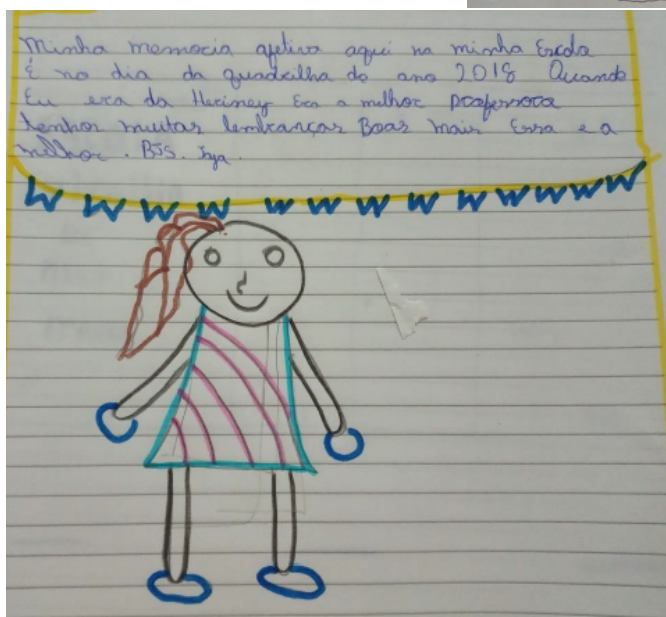 Minha memocia afetiva aqui na minha Escola
É no dia da quadrilha do ano 2018 Quando
Eu era da Heriney Era a melhor professora
tenhor muitas lembranças Boas mais Essa e a
melhor. BJS.
W W W W W W W W W W W W W